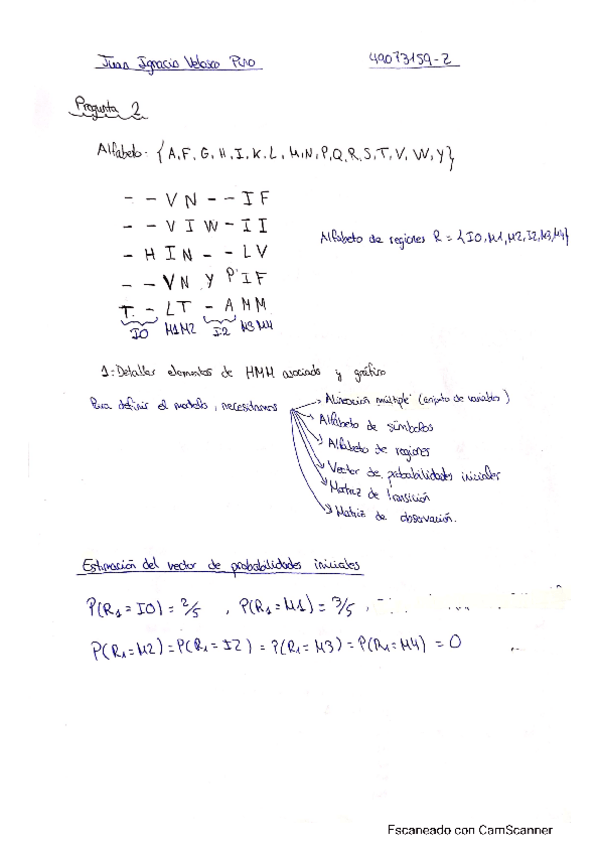 Juan Ignacio Velasco Puro 49073159-Z
Pregunta 2
Alfabeto: {A, F, G, H, I, K, L, M, N, P, Q, R, S, T, V, W, Y}
- - V N - - I F
- - V I W - I I
Alfabeto de regiones R = {I0, M1, M2, I2, M3, M4}
- H I N - - L V
- - V N Y P I F
T - L T - A M M
I0 M1 M2 I2 M3 M4
1: Detallar elementos de HMM asociado y gráfico
Para definir el modelo, necesitamos
Alineación múltiple (conjunto de variables)
Alfabeto de símbolos
Alfabeto de regiones
Vector de probabilidades iniciales
Matriz de transición
Matriz de observación.
Estimación del vector de probabilidades iniciales
P(R1 = I0) = 2/5 , P(R1 = M1) = 3/5 ,
P(R1 = M2) = P(R1 = I2) = P(R1 = M3) = P(R1 = M4) = 0
Escaneado con CamScanner